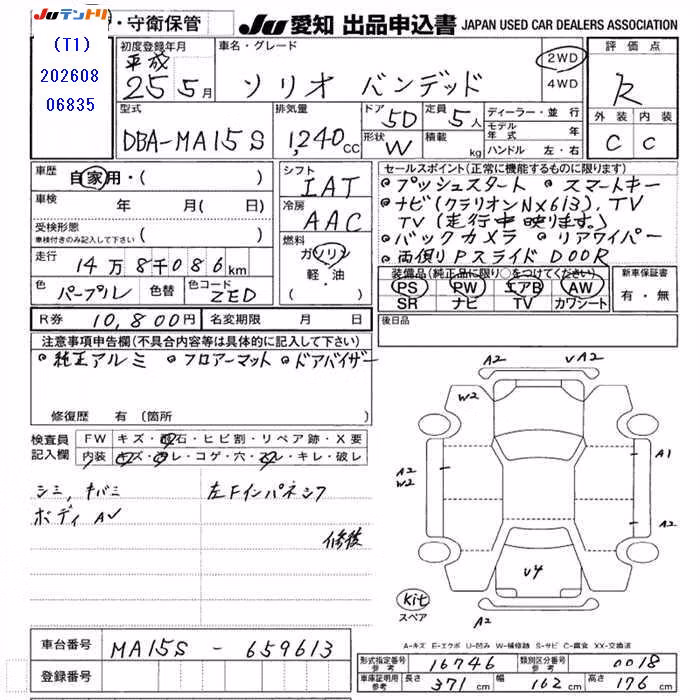 Juテントリ ・守衛保管
(T1)
202608
06835
Ju 愛知 出品申込書 JAPAN USED CAR DEALERS ASSOCIATION
初度登録年月
平成
25 5月
車名・グレード
ソリオ バンデッド
2WD
4WD
評価点
R
外装 内装
C C
型式
DBA-MA15S
排気量
1,240cc
ドア 5D
定員 5人
形状 W
積載 kg
ディーラー・並行
モデル年式 年
ハンドル 左・右
車歴 自家用・( )
車検 年 月( 日)
受検形態
車検付きのみ記入して下さい ( )
走行 14万8千086km
色 パープル 色替 色コード ZED
シフト
IAT
冷房
AAC
燃料
ガソリン
軽・油
セールスポイント(正常に機能するものに限ります)
・プッシュスタート ・スマートキー
・ナビ(クラリオンNX613).TV
TV(走行中映ります。)
・バックカメラ ・リアワイパー
・両側PスライドDOOR
装備品(純正品に限り○をつけてください)
PS PW エアB AW
SR ナビ TV カワシート
新車保証書
有・無
R券 10,800円 名変期限 月 日
後日品
注意事項申告欄(不具合内容等は具体的に記入して下さい)
・純正アルミ ・フロアーマット ・ドアバイザー
修復歴 有(箇所
検査員記入欄
FW キズ・飛石・ヒビ割・リペア跡・X要
内装 キズ・汚レ・コゲ・穴・スレ・キレ・破レ
シミ,キバミ 左Fインパネシワ
ボディ A
修後
A2 VA2
W2
A2
W2
A1
A2
V4
A2
Kit
スペア
A-キズ E-エクボ U-凹み W-補修跡 S-サビ C-腐食 XX-交換済
車台番号 MA15S - 659613
登録番号
形式指定番号 参考 16746 類別区分番号 参考 0018
車庫証明用 参考 長さ 371cm 幅 162cm 高さ 176cm